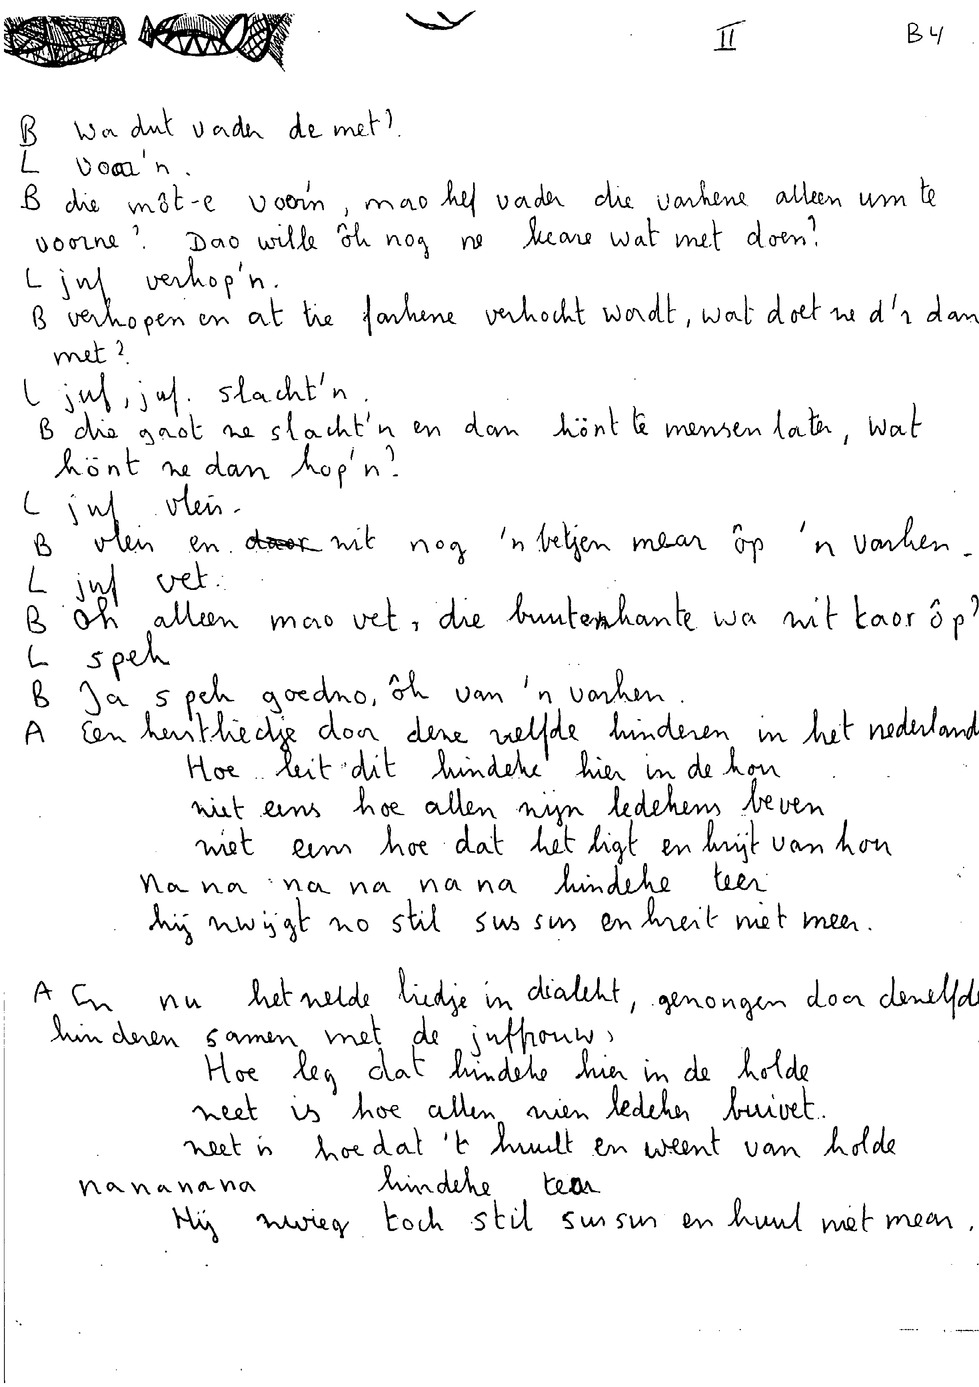 II B4
B Wa dut vader de met?
L voor'n.
B die môt-e voor'n, mao hef vader die varkene alleen um te
voorne? Dao wille ôk nog ne keare wat met doen?
L juf verkop'n.
B verkopen en at tie farkene verkocht wordt, wat doet ze d'r dan
met?
L juf, juf. slacht'n.
B die gaot ze slacht'n en dan könt te mensen later, wat
könt ze dan kop'n?
L juf vleis.
B vleis en daor zit nog 'n betjen mear ôp 'n varken.
L juf vet.
B Oh alleen mao vet, die buutenkante wa zit taor ôp?
L spek
B Ja spek goedzo, ôk van 'n varken.
A Een kerstliedje door deze zelfde kinderen in het nederland
Hoe leit dit kindeke hier in de kou
ziet eens hoe allen zijn ledekens beven
ziet eens hoe dat het ligt en krijt van kou
na na na na na na kindeke teer
hij zwijgt zo stil sus sus en kreit niet meer.
A En nu het zelde liedje in dialekt, gezongen door dezelfde
kinderen samen met de juffrouw,
Hoe leg dat kindeke hier in de kolde
zeet is hoe allen zien ledeken buivet.
zeet is hoe dat 't huult en weent van kolde
na na na na kindeke tear
Hij zwieg toch stil sus sus en huul niet mear.